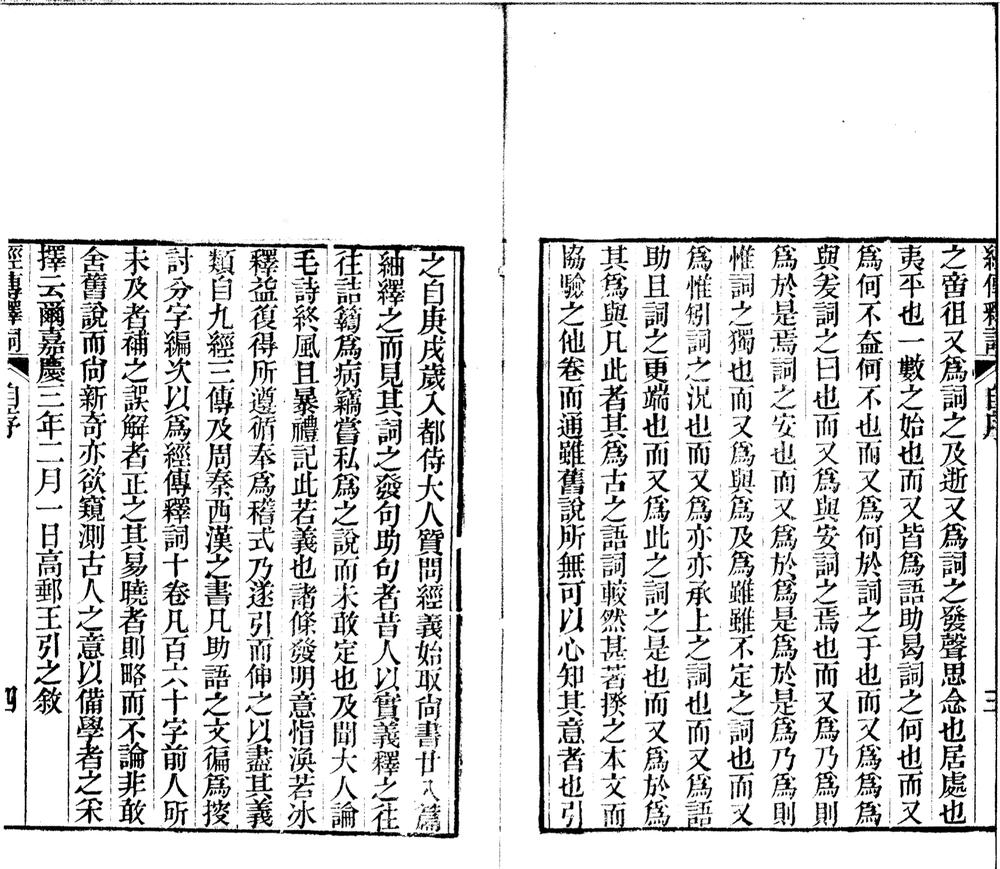 經傳釋詞 自序 三
之嗇徂又爲詞之及逝又爲詞之發聲思念也居處也
夷平也一數之始也而又皆爲語助曷詞之何也而又
爲何不盍何不也而又爲何於詞之于也而又爲爲爲
與爰詞之曰也而又爲與安詞之焉也而又爲乃爲則
爲於是焉詞之安也而又爲於爲是爲於是爲乃爲則
惟詞之獨也而又爲與爲及爲雖雖不定之詞也而又
爲惟矧詞之況也而又爲亦亦承上之詞也而又爲語
助且詞之更端也而又爲此之詞之是也而又爲於爲
其爲與凡此者其爲古之語詞較然甚著揆之本文而
協驗之他卷而通雖舊說所無可以心知其意者也引
之自庚戌歲入都侍大人質問經義始取尙書廿八篇
紬繹之而見其詞之發句助句者昔人以實義釋之往
往詰𥷚爲病竊嘗私爲之說而未敢定也及聞大人論
毛詩終風且暴禮記此若義也諸條發明意恉渙若冰
釋益復得所遵循奉爲稽式乃遂引而伸之以盡其義
類自九經三傳及周秦西漢之書凡助語之文徧爲搜
討分字編次以爲經傳釋詞十卷凡百六十字前人所
未及者補之誤解者正之其易曉者則略而不論非敢
舍舊說而尙新奇亦欲窺測古人之意以備學者之采
擇云爾嘉慶三年二月一日高郵王引之敘
經傳釋詞 自序 四